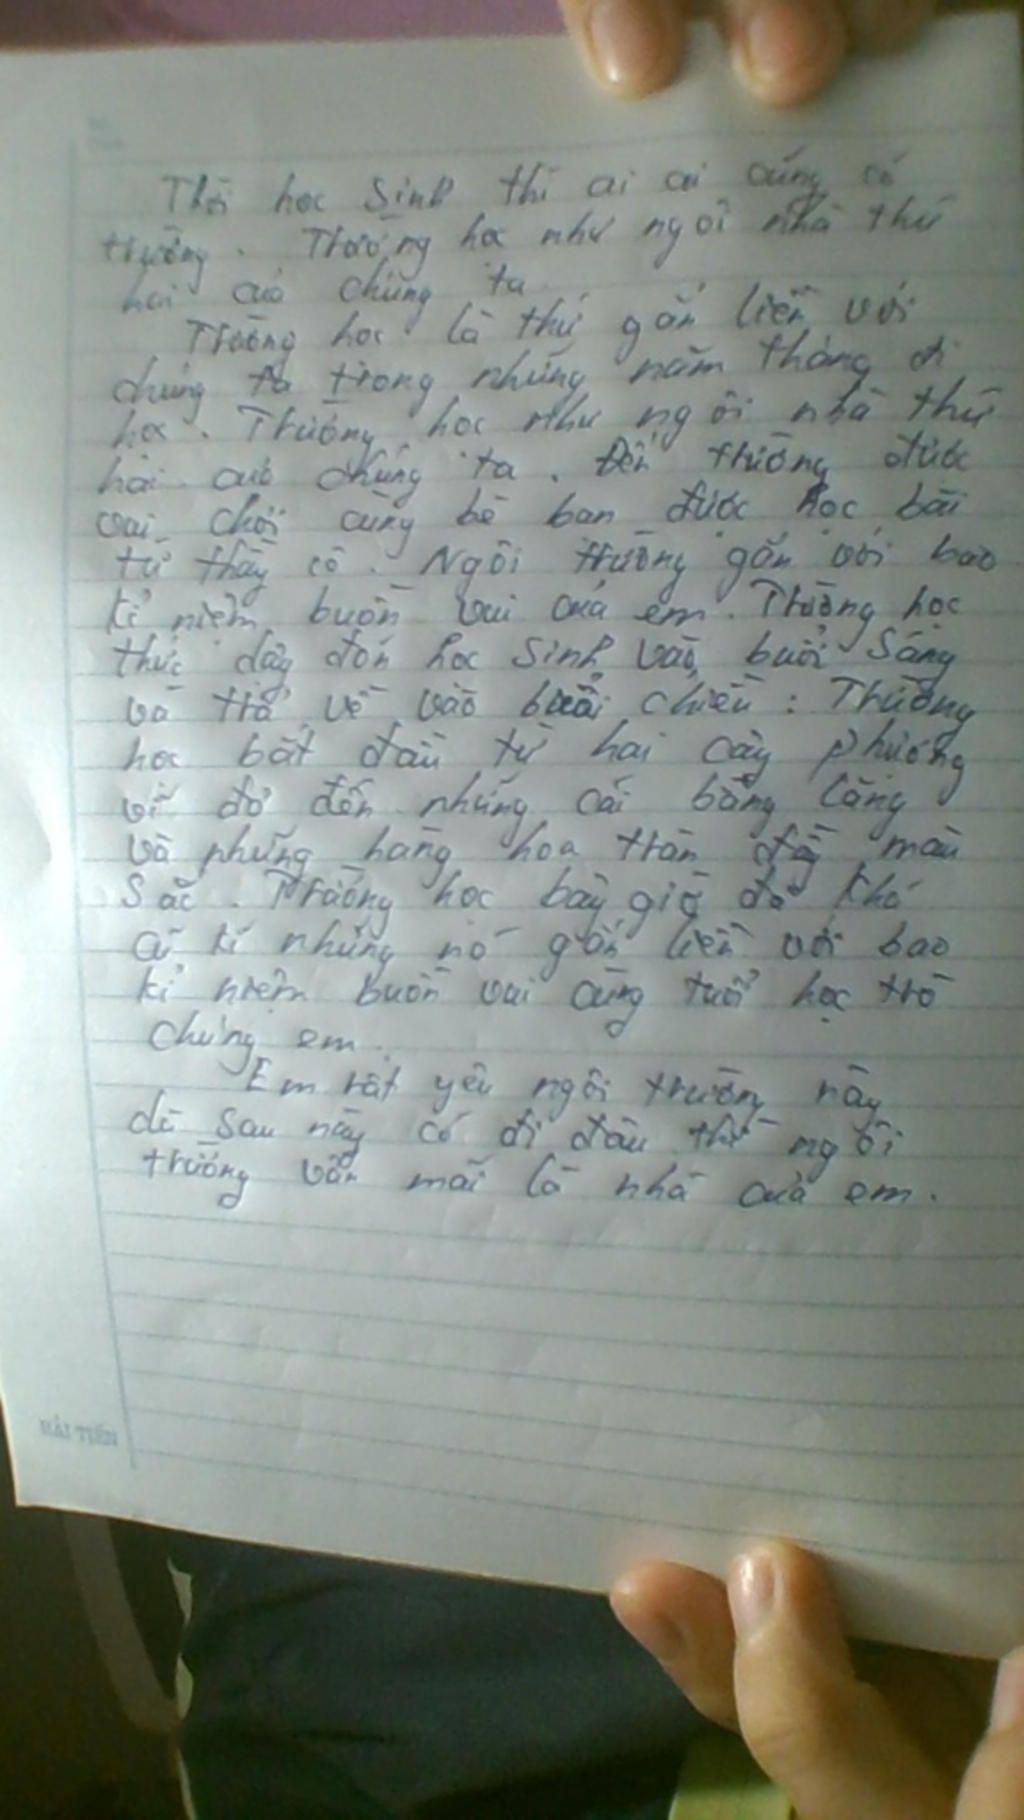 Thời học Sinh thì ai ai cũng có
trường. Trường học như ngôi nhà thứ
hai của chúng ta
Trường học là thứ gắn liền với
chúng ta trong những năm tháng đi
học. Trường học như ngôi nhà thứ
hai của chúng ta. Đến trường được
vui chơi cùng bè bạn được học bài
từ thầy cô. Ngôi trường gắn với bao
kỉ niệm buồn vui của em. Trường học
thức dậy đón học Sinh vào buổi Sáng
và trở về vào buổi chiều: Trường
học bắt đầu từ hai cây phượng
vĩ đỏ đến những cái bằng lăng
và những hàng hoa tràn đầy màu
Sắc. Trường học bây giờ đã khá
cũ kĩ nhưng nó gắn liền với bao
kỉ niệm buồn vui cùng tuổi học trò
chúng em.
Em rất yêu ngôi trường này
dù sau này có đi đâu thì ngôi
trường vẫn mãi là nhà của em.
HẢI TIẾN